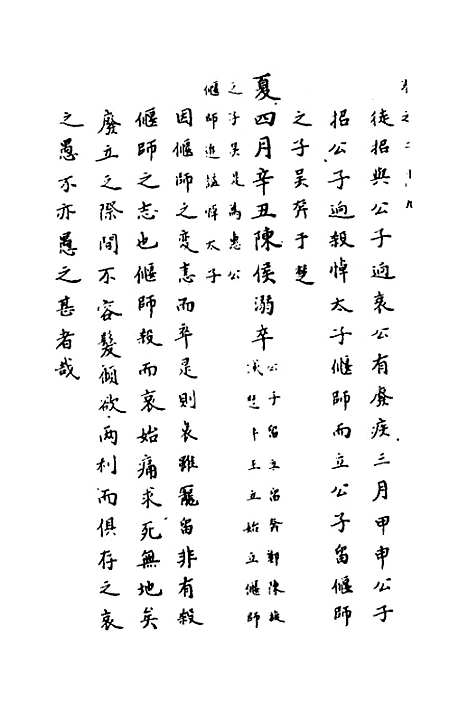 卷之二十九
徒招與公子過哀公有廢疾三月甲申公子
招公子過殺悼太子偃師而立公子留偃師
之子吴奔于楚
夏四月辛丑陳侯溺卒公子留立留奔鄭陳
滅楚卜王立始立偃師
之子吴是為惠公
偃師追諡悼太子
因偃師之变恚而卒是則哀雖寵留非有殺
偃師之志也偃師殺而哀始痛求死無地矣
廢立之際間不容髮傾欲兩利而俱存之哀
之愚不亦愚之甚者哉